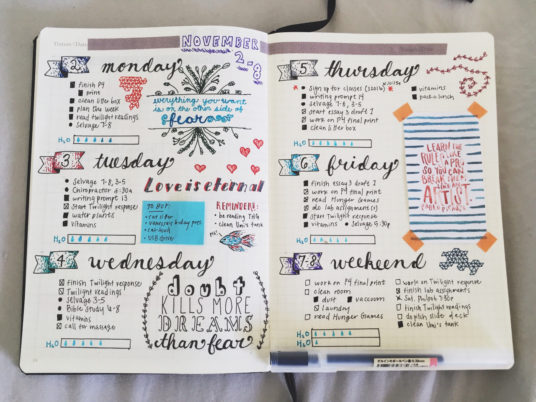 NOVEMBER
2-8
2 monday
finish P4
print
clean litter box
plan the week
read twilight readings
selvage 7-8
H2O
everything you want
is on the other side of
fear
3 tuesday
selvage 7-8, 3-5
Chiropractor
writing prompt 13
start Twilight response
water plants
vitamins
H2O
Love is eternal
TO BUY:
cat litter
USB drive
REMEMBER:
clean Uni's tank
4 wednesday
finish Twilight response
Twilight readings
selvage 3-5
Bible Study 6-8
vitamins
call for massage
H2O
doubt
KILLS MORE
DREAMS
than fear
5 thursday
sign up for classes
writing prompt 14
selvage 7-8, 3-5
start essay 3 draft 1
work on P4 final print
clean litter box
vitamins
pack lunch
H2O
LEARN THE
RULES LIKE
A PRO,
SO YOU CAN
BREAK THEM
LIKE AN
ARTIST
6 friday
finish essay 3 draft 1
work on P4 final print
read Hunger Games
do lab assignment
start Twilight response
vitamins
selvage 5:30p
H2O
7-8 weekend
work on P4 final print
clean room
dust
vacuum
laundry
read Hunger Games
work on Twilight response
finish lab assignments
Twilight readings
slide deck
clean Uni's tank
H2O